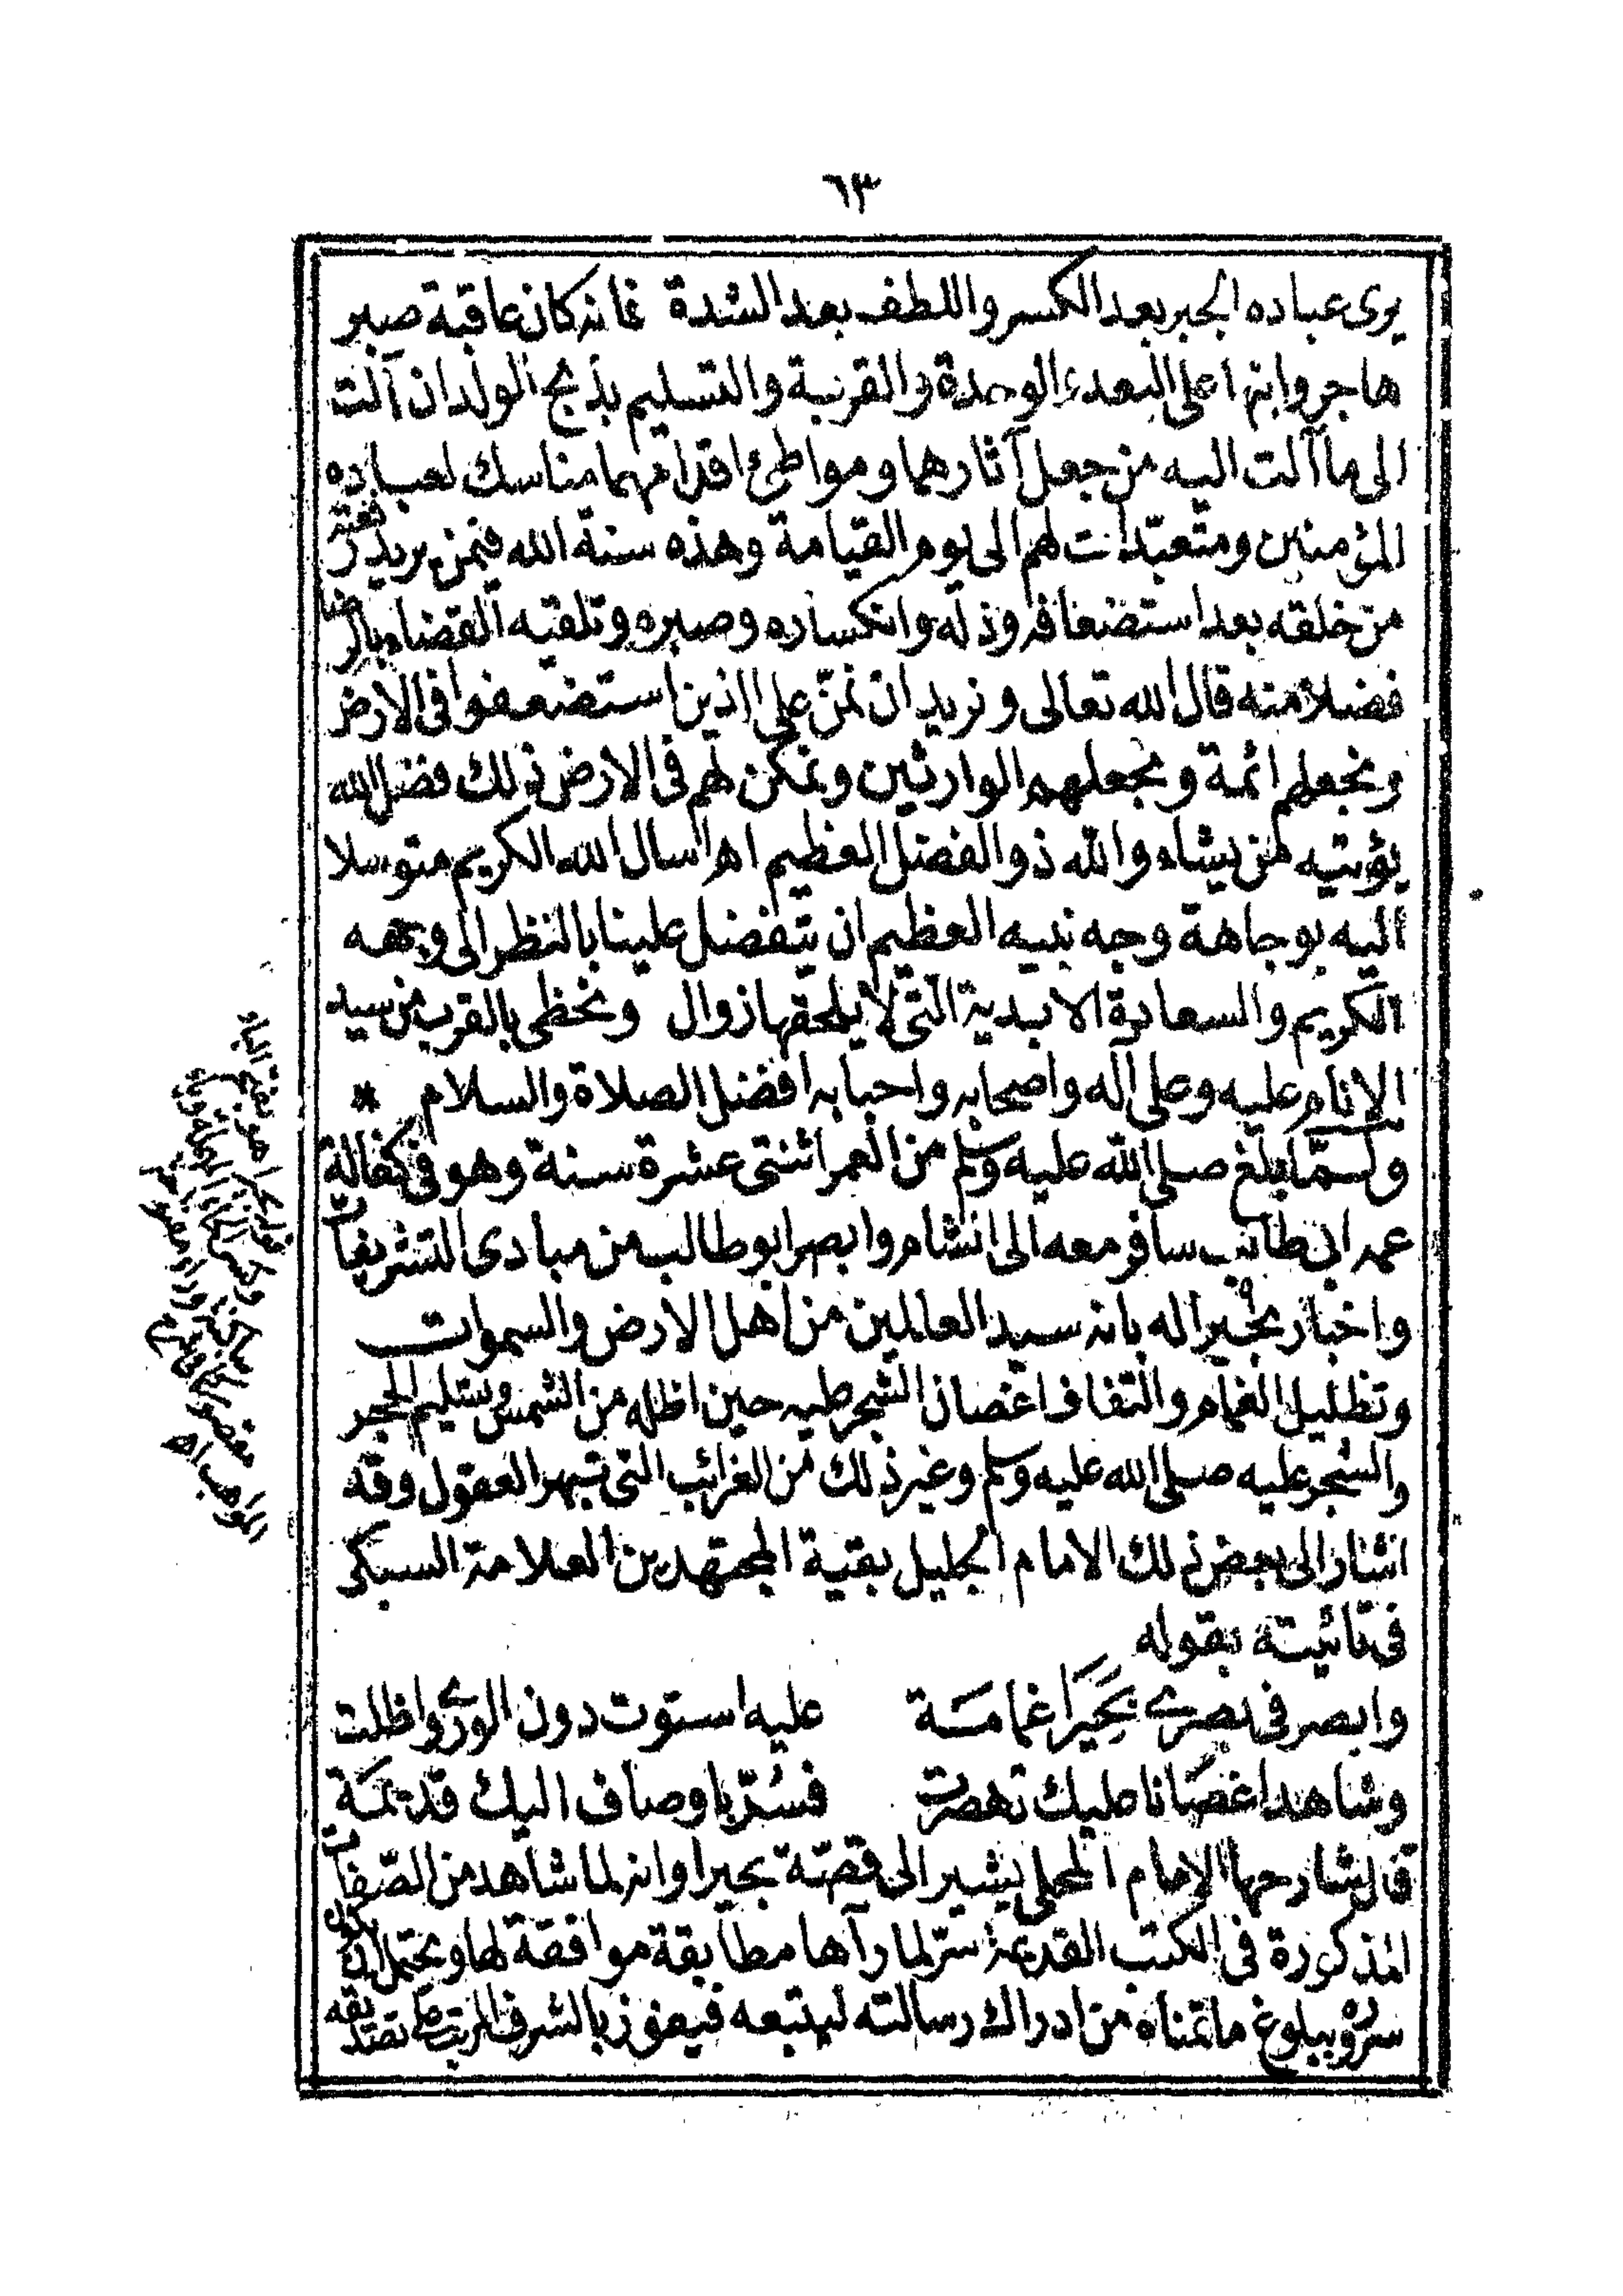 ٦٣
يرى عباده الجبر بعد الكسر واللطف بعد الشدة فانه كان عاقبة صبر
هاجر وابنها على البعد والوحدة والغربة والتسليم بذبح الولد ان آلت
الى ما آلت اليه من جعل آثارهما ومواطئ اقدامهما مناسك لعباده
المؤمنين ومتعبّدات لهم الى يوم القيامة وهذه سنة الله فيمن يريد رفعته
من خلقه بعد استضعافه وذله وانكساره وصبره وتلقيه القضاء بالرضا
فضلا منه قال الله تعالى ونريد ان نمنّ على الذين استضعفوا فى الارض
ونجعلهم ائمة ونجعلهم الوارثين ونمكن لهم فى الارض ذلك فضل الله
يؤتيه من يشاء والله ذو الفضل العظيم اهـ اسال الله الكريم متوسلا
اليه بوجاهة وجه نبيه العظيم ان يتفضل علينا بالنظر الى وجهه
الكريم والسعادة الابدية التى لا يلحقها زوال ونحظى بالقرب من سيد
الانام عليه وعلى آله واصحابه واحبابه افضل الصلاة والسلام *
ولمّا بلغ صلى الله عليه وسلم من العمر اثنتى عشرة سنة وهو فى كفالة
عمه ابى طالب سافر معه الى الشام وابصر ابو طالب من مبادى التشريفات
واخبار بحيرا له بانه سيد العالمين من اهل الارض والسموات
وتظليل الغمام والتفاف اغصان الشجر عليه حين اظله من الشمس وتسليم الحجر
والشجر عليه صلى الله عليه وسلم وغير ذلك من الغرائب التى تبهر العقول وقد
اشار الى بعض ذلك الامام الجليل بقية المجتهدين العلامة السبكى
فى تائيته بقوله
وابصر فى بصرى بَحِيرَا غمامَة عليه استوت دون الورى واظلت
وشاهد اغصانا عليك تهصرت فسُرّ باوصاف اليك قديمَة
قال شارحها الامام المحلى يشير الى قصّة بحيرا وانه لما شاهد من الصّفات
المذكورة فى الكتب القديمة سرّ لما رآها مطابقة موافقة لها ويحتمل ان يكون
سروره ببلوغ ما تمناه من ادراك رسالته ليتبعه فيفوز بالشرف المرتب على تصديقه